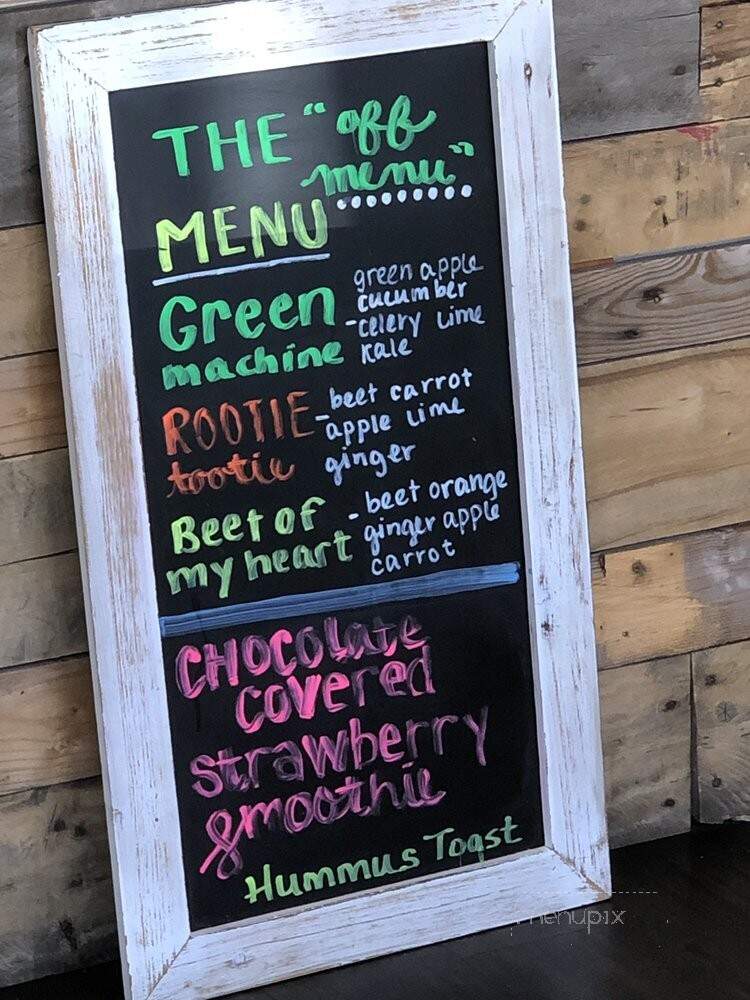 THE "off
menu"
MENU
Green
machine
green apple
cucumber
-celery lime
kale
ROOTIE
tootie
-beet carrot
apple lime
ginger
Beet of
my heart
- beet orange
ginger apple
carrot
CHOCOLate
covered
strawberry
smoothie
Hummus Toast
menupix